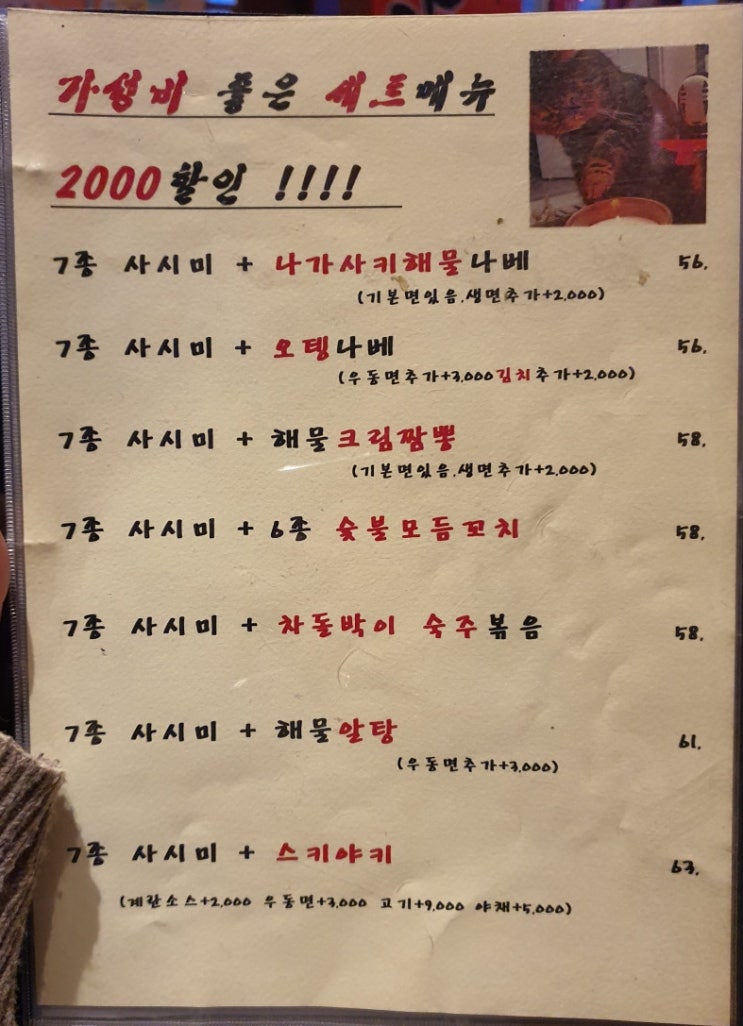 가성비 좋은 세트메뉴
2000할인 !!!!
7종 사시미 + 나가사키해물나베 56.
(기본면있음.생면추가+2,000)
7종 사시미 + 오뎅나베 56.
(우동면추가+3,000김치추가+2,000)
7종 사시미 + 해물크림짬뽕 58.
(기본면있음.생면추가+2,000)
7종 사시미 + 6종 숯불모듬꼬치 58.
7종 사시미 + 차돌박이 숙주볶음 58.
7종 사시미 + 해물알탕 61.
(우동면추가+3,000)
7종 사시미 + 스키야키 63.
(계란소스+2,000 우동면+3,000 고기+9,000 야채+5,000)